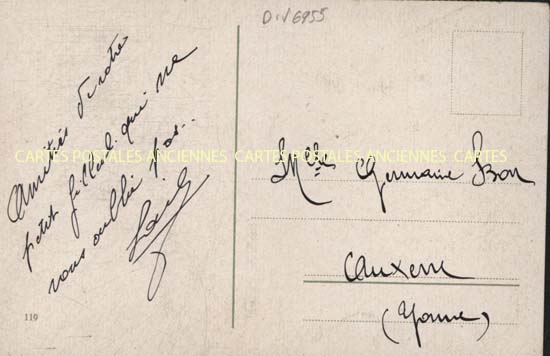 Div6955
Amitiés de votre
petit filleul qui ne
vous oublie pas...
CARTES POSTALES ANCIENNES CARTES POSTALES ANCIENNES CARTES POSTALES
Melle Germaine Bon
Auxerre
(Yonne)
119